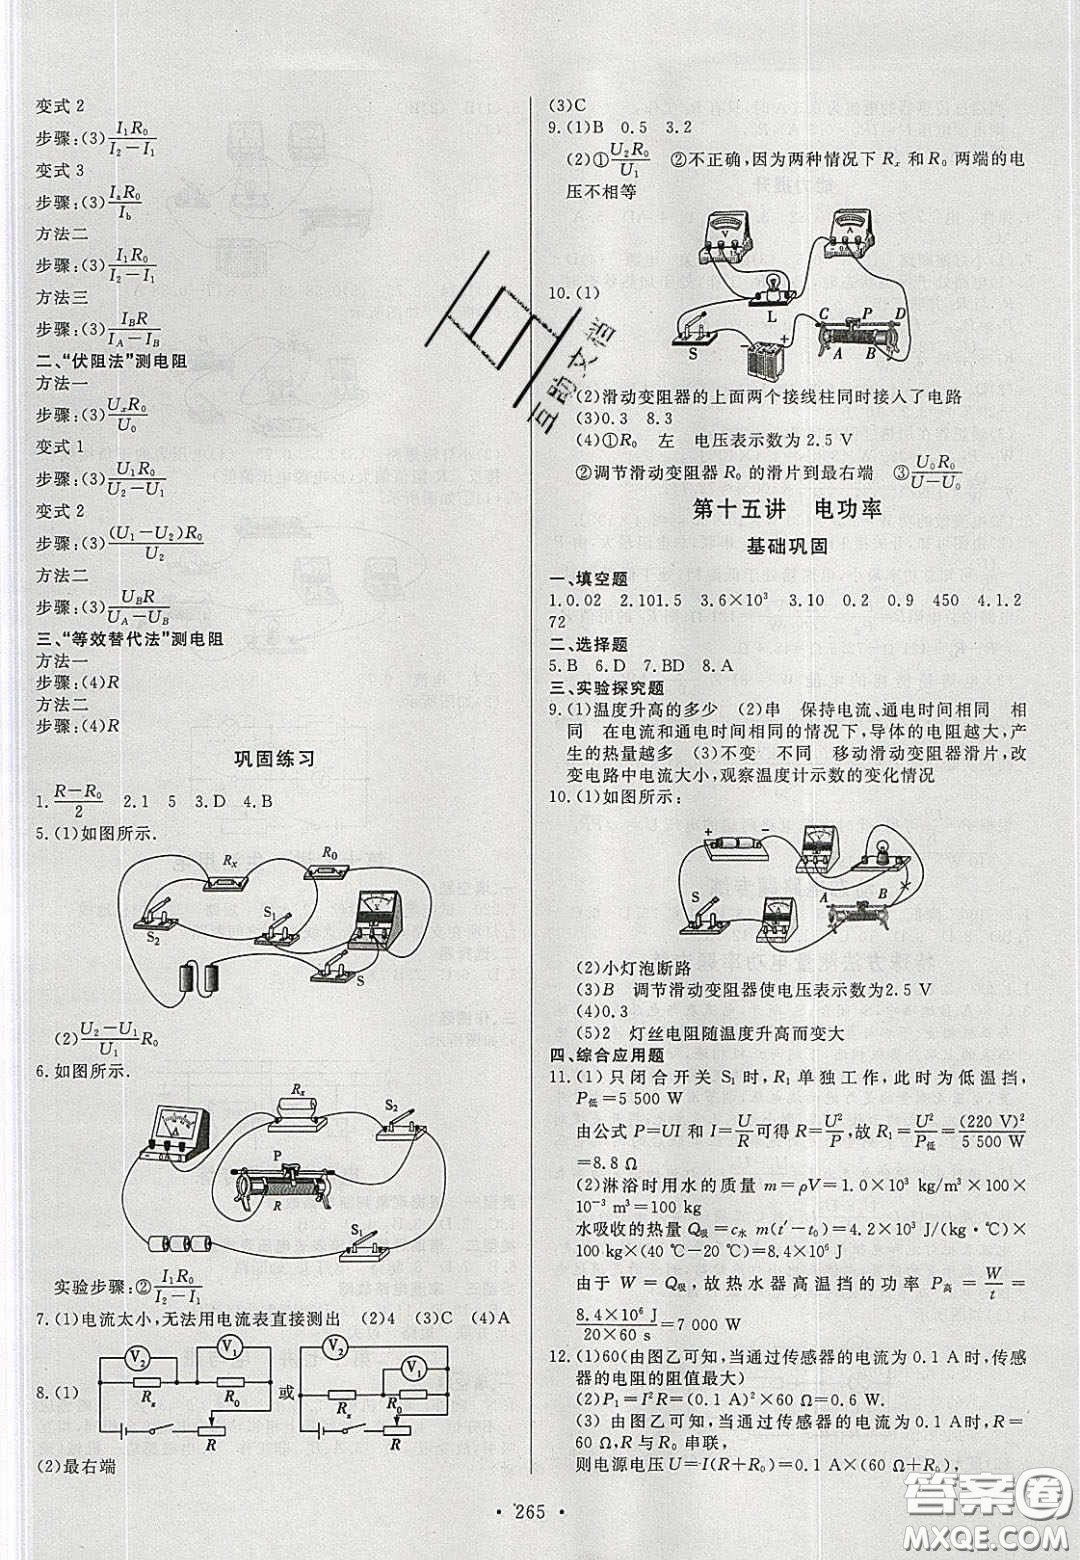 变式 2
步骤:(3) I₁R₀/(I₂－I₁)
变式 3
步骤:(3) IₐR₀/I_b
方法二
步骤:(3) I₁R₀/(I₂－I₁)
方法三
步骤:(3) I_BR/(I_A－I_B)
二、“伏阻法”测电阻
方法一
步骤:(3) UₓR₀/U₀
变式 1
步骤:(3) U₁R₀/(U₂－U₁)
变式 2
步骤:(3) (U₁－U₂)R₀/U₂
方法二
步骤:(3) U_BR/(U_A－U_B)
三、“等效替代法”测电阻
方法一
步骤:(4)R
方法二
步骤:(4)R
巩固练习
1. (R－R₀)/2 2.1 5 3.D 4.B
5.(1)如图所示.
Rₓ R₀
S₂ S₁ V
S
(2) (U₂－U₁)/U₁ R₀
6.如图所示.
A Rₓ S₂
P
R
S₁
实验步骤:② I₁R₀/(I₂－I₁)
7.(1)电流太小,无法用电流表直接测出 (2)4 (3)C (4)A
8.(1)
V₂ V₁ Rₓ R₀ R 或 V₂ V₁ Rₓ R₀ R
(2)最右端
(3)C
9.(1)B 0.5 3.2
(2)① U₂R₀/U₁ ②不正确,因为两种情况下 Rₓ 和 R₀ 两端的电
压不相等
10.(1)
V A
L C P D
S － ＋ A B
(2)滑动变阻器的上面两个接线柱同时接入了电路
(3)0.3 8.3
(4)①R₀ 左 电压表示数为 2.5 V
②调节滑动变阻器 R₀ 的滑片到最右端 ③ U₀R₀/(U－U₀)
第十五讲 电功率
基础巩固
一、填空题
1.0.02 2.101.5 3.6×10³ 3.10 0.2 0.9 450 4.1.2
72
二、选择题
5.B 6.D 7.BD 8.A
三、实验探究题
9.(1)温度升高的多少 (2)串 保持电流、通电时间相同 相
同 在电流和通电时间相同的情况下,导体的电阻越大,产
生的热量越多 (3)不变 不同 移动滑动变阻器滑片,改
变电路中电流大小,观察温度计示数的变化情况
10.(1)如图所示:
＋ －
S A B
(2)小灯泡断路
(3)B 调节滑动变阻器使电压表示数为 2.5 V
(4)0.3
(5)2 灯丝电阻随温度升高而变大
四、综合应用题
11.(1) 只闭合开关 S₁ 时, R₁ 单独工作, 此时为低温挡,
P低＝5 500 W
由公式 P＝UI 和 I＝U/R 可得 R＝U²/P,故 R₁＝U²/P低＝(220 V)²/5 500 W
＝8.8 Ω
(2)淋浴时用水的质量 m＝ρV＝1.0×10³ kg/m³×100×
10⁻³ m³＝100 kg
水吸收的热量 Q吸＝c水 m(t′－t₀)＝4.2×10³ J/(kg·℃)×
100 kg×(40 ℃－20 ℃)＝8.4×10⁶ J
由于 W＝Q吸, 故热水器高温挡的功率 P高＝W/t＝
8.4×10⁶ J/(20×60 s)＝7 000 W
12.(1)60(由图乙可知,当通过传感器的电流为 0.1 A时,传感
器的电阻的阻值最大)
(2)P₁＝I²R＝(0.1 A)²×60 Ω＝0.6 W
(3) 由图乙可知,当通过传感器的电流为 0.1 A时,R＝
60 Ω,R 与 R₀ 串联,
则电源电压 U＝I(R＋R₀)＝0.1 A×(60 Ω＋R₀),
· 265 ·
互助文档
答案圈
MXQE.COM